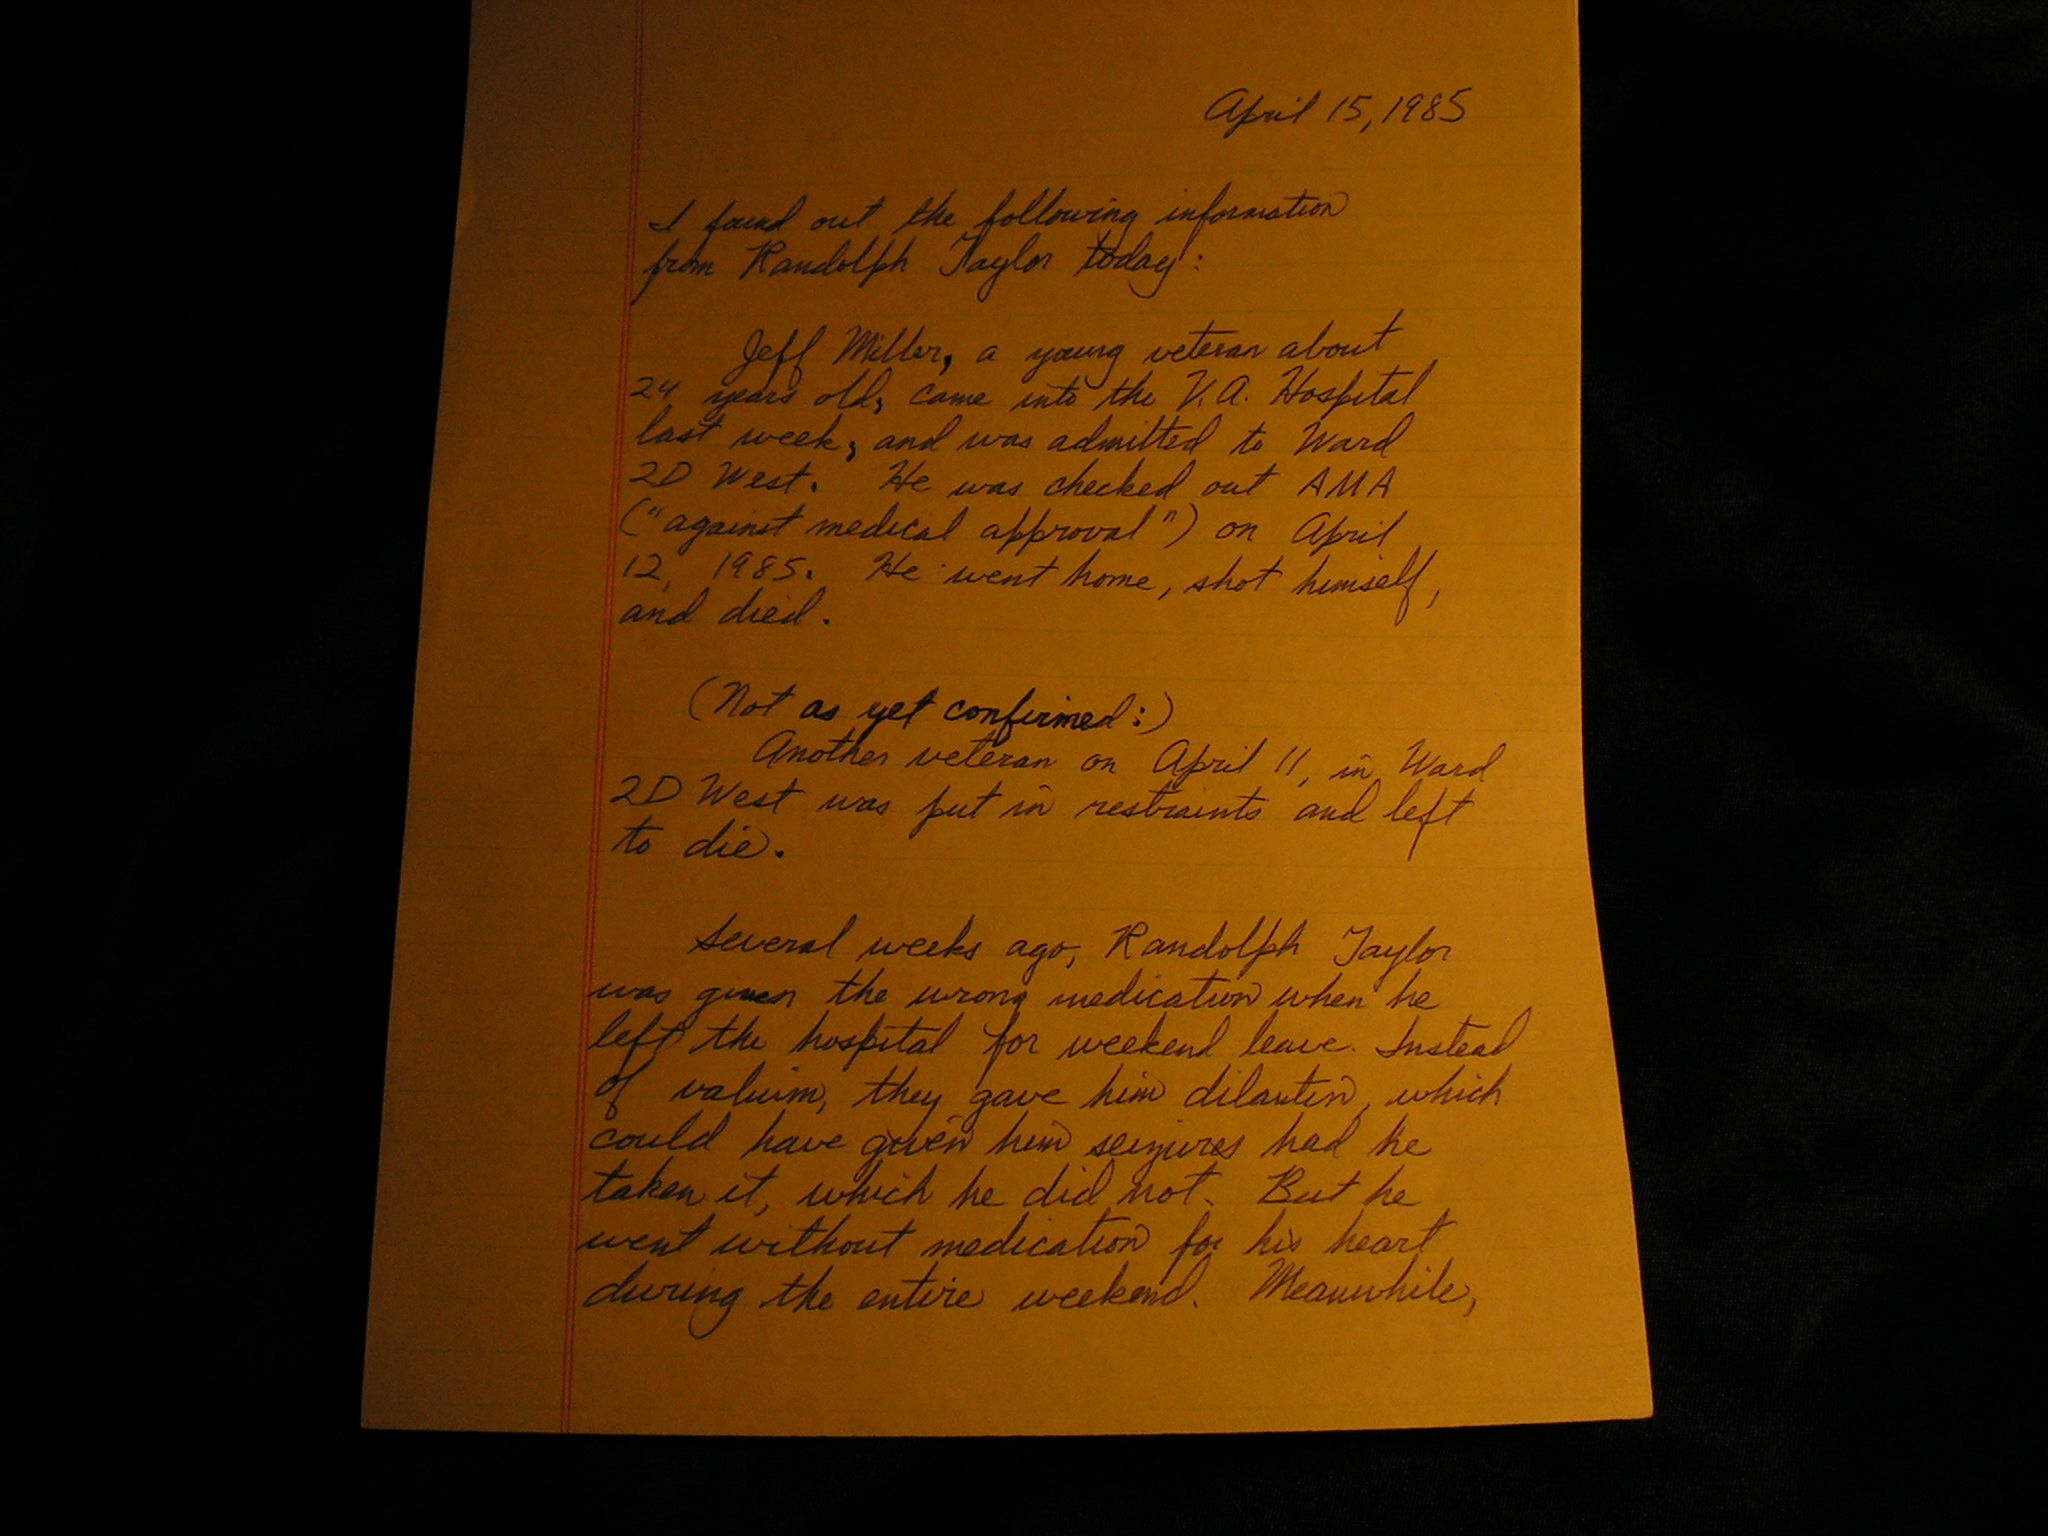 April 15, 1985
I found out the following information
from Randolph Taylor today:
Jeff Miller, a young veteran about
24 years old, came into the V.A. Hospital
last week, and was admitted to Ward
2D West. He was checked out AMA
("against medical approval") on April
12, 1985. He went home, shot himself,
and died.
(Not as yet confirmed:)
Another veteran on April 11, in Ward
2D West was put in restraints and left
to die.
Several weeks ago, Randolph Taylor
was given the wrong medication when he
left the hospital for weekend leave. Instead
of valium, they gave him dilantin, which
could have given him seizures had he
taken it, which he did not. But he
went without medication for his heart
during the entire weekend. Meanwhile,